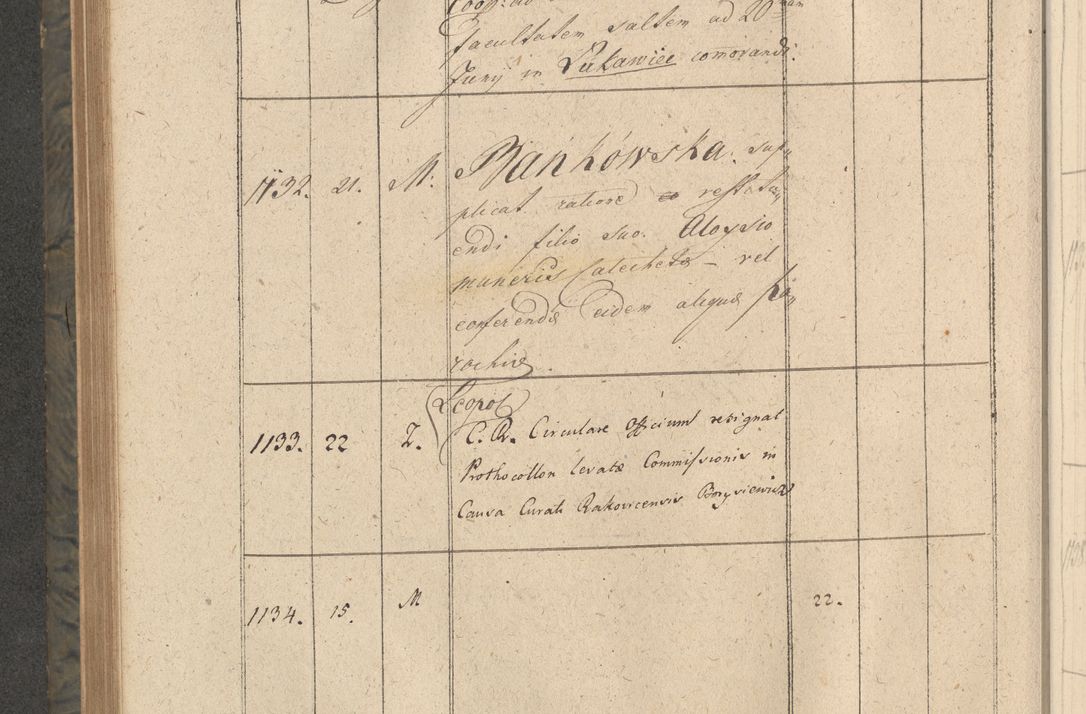 Facultatem saltem ad 20
Junij in Lukawiec comorandi.
1132. 21. M. Bańkówska. sup,
plicat ratione restitu,
endi filio suo. Aloysio
muneris Catechetæ – vel
conferendæ eidem aliquæ Pa,
rochiæ.
Leopol
1133. 22 Z. C. R. Circulare Officium resignat
Prothocollon levatæ Commissionis in
Causa Curati Rakovicensis Borysiewicz
1134. 15. M 22.